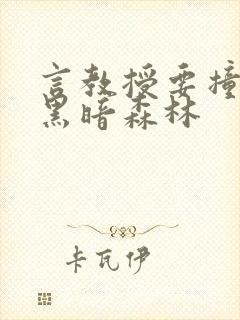 言教授要撞
黑暗森林
卡瓦伊